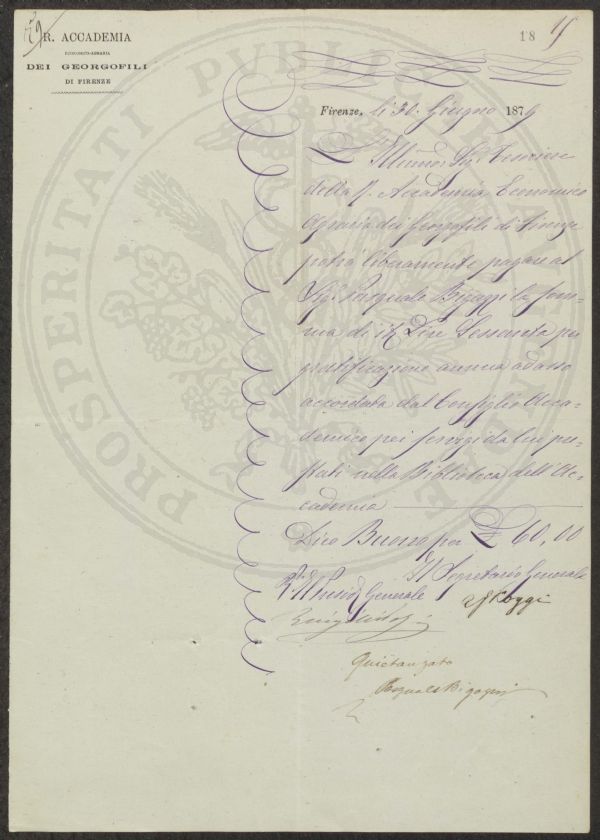 R. ACCADEMIA
ECONOMICO-AGRARIA
DEI GEORGOFILI
DI FIRENZE
18
Firenze, li 30. Giugno 1879
L'Illmo. Sigr. Tesoriere
della R. Accademia Economico
Agraria dei Georgofili di Firenze
potrà liberamente pagare al
Sigr. Pasquale Bigazzi la som-
ma di Lire Sessanta per
gratificazione annua ad esso
accordata dal Consiglio Acca-
demico pei servigi da lui pre-
stati nella Biblioteca dell'Ac-
cademia
Dico Buono per £ 60,00
Il Segretario Generale
Generale
Quietanzato
Pasquale Bigazzi
PROSPERITATI PUBLICAE AUGENDAE